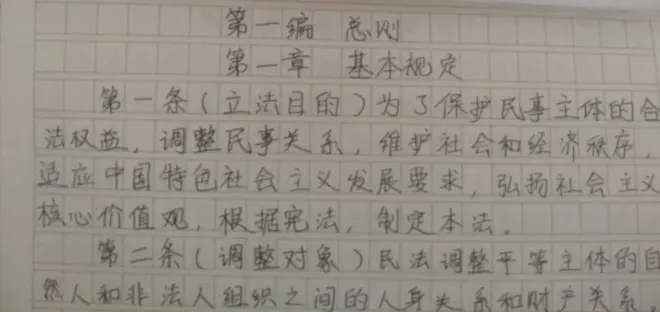 第一编 总则
第一章 基本规定
第一条(立法目的)为了保护民事主体的合
法权益,调整民事关系,维护社会和经济秩序,
适应中国特色社会主义发展要求,弘扬社会主义
核心价值观,根据宪法,制定本法。
第二条(调整对象)民法调整平等主体的自
然人和非法人组织之间的人身关系和财产关系。